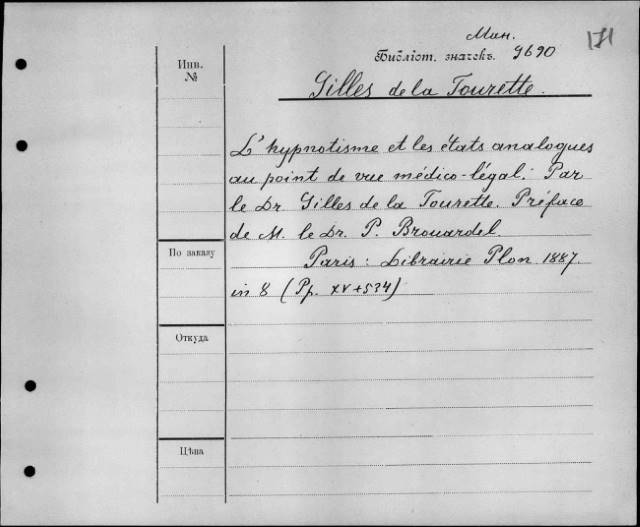 Мин.
171
Библіот. значекъ. 9690
Инв.
№
Gilles de la Tourette.
L'hypnotisme et les états analogues
au point de vue médico-légal. Par
le Dr Gilles de la Tourette. Préface
de M. le Dr. P. Brouardel.
По заказу
Paris: Librairie Plon. 1887.
in 8 (Pp. XV+534)
Откуда
Цѣна